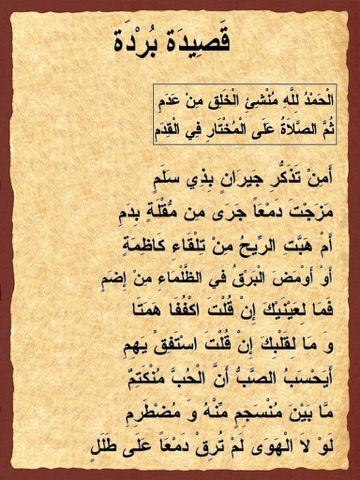 قَصِيدَة بُرْدَة
الْحَمْدُ لِلَّهِ مُنْشِئِ الْخَلِقِ مِنْ عَدَمِ
ثُمَّ الصَّلَاةُ عَلَى الْمُخْتَارِ فِي الْقِدَمِ
أَمِنْ تَذَكُّرِ جِيرَانٍ بِذِي سَلَمِ
مَزَجْتَ دَمْعَاً جَرَى مِن مُقْلَةٍ بِدَمِ
أَمْ هَبَّتِ الرِّيحُ مِنْ تِلْقَاءِ كَاظِمَةٍ
أَوْ أَوْمَضَ الْبَرْقُ فِي الظَّلْمَاءِ مِنْ إِضَمِ
فَمَا لِعَيْنَيْكَ إِنْ قُلْتَ اكْفُفَا هَمَتَا
وَ مَا لِقَلْبِكَ إِنْ قُلْتَ اسْتَفِقْ يَهِمِ
أَيَحْسَبُ الصَّبُّ أَنَّ الْحُبَّ مُنْكَتِمٌ
مَّا بَيْنَ مُنْسَجِمٍ مِّنْهُ وَ مُضْطَرِمِ
لَوْ لا الْهَوَى لَمْ تُرِقْ دَمْعَاً عَلَى طَلَلٍ